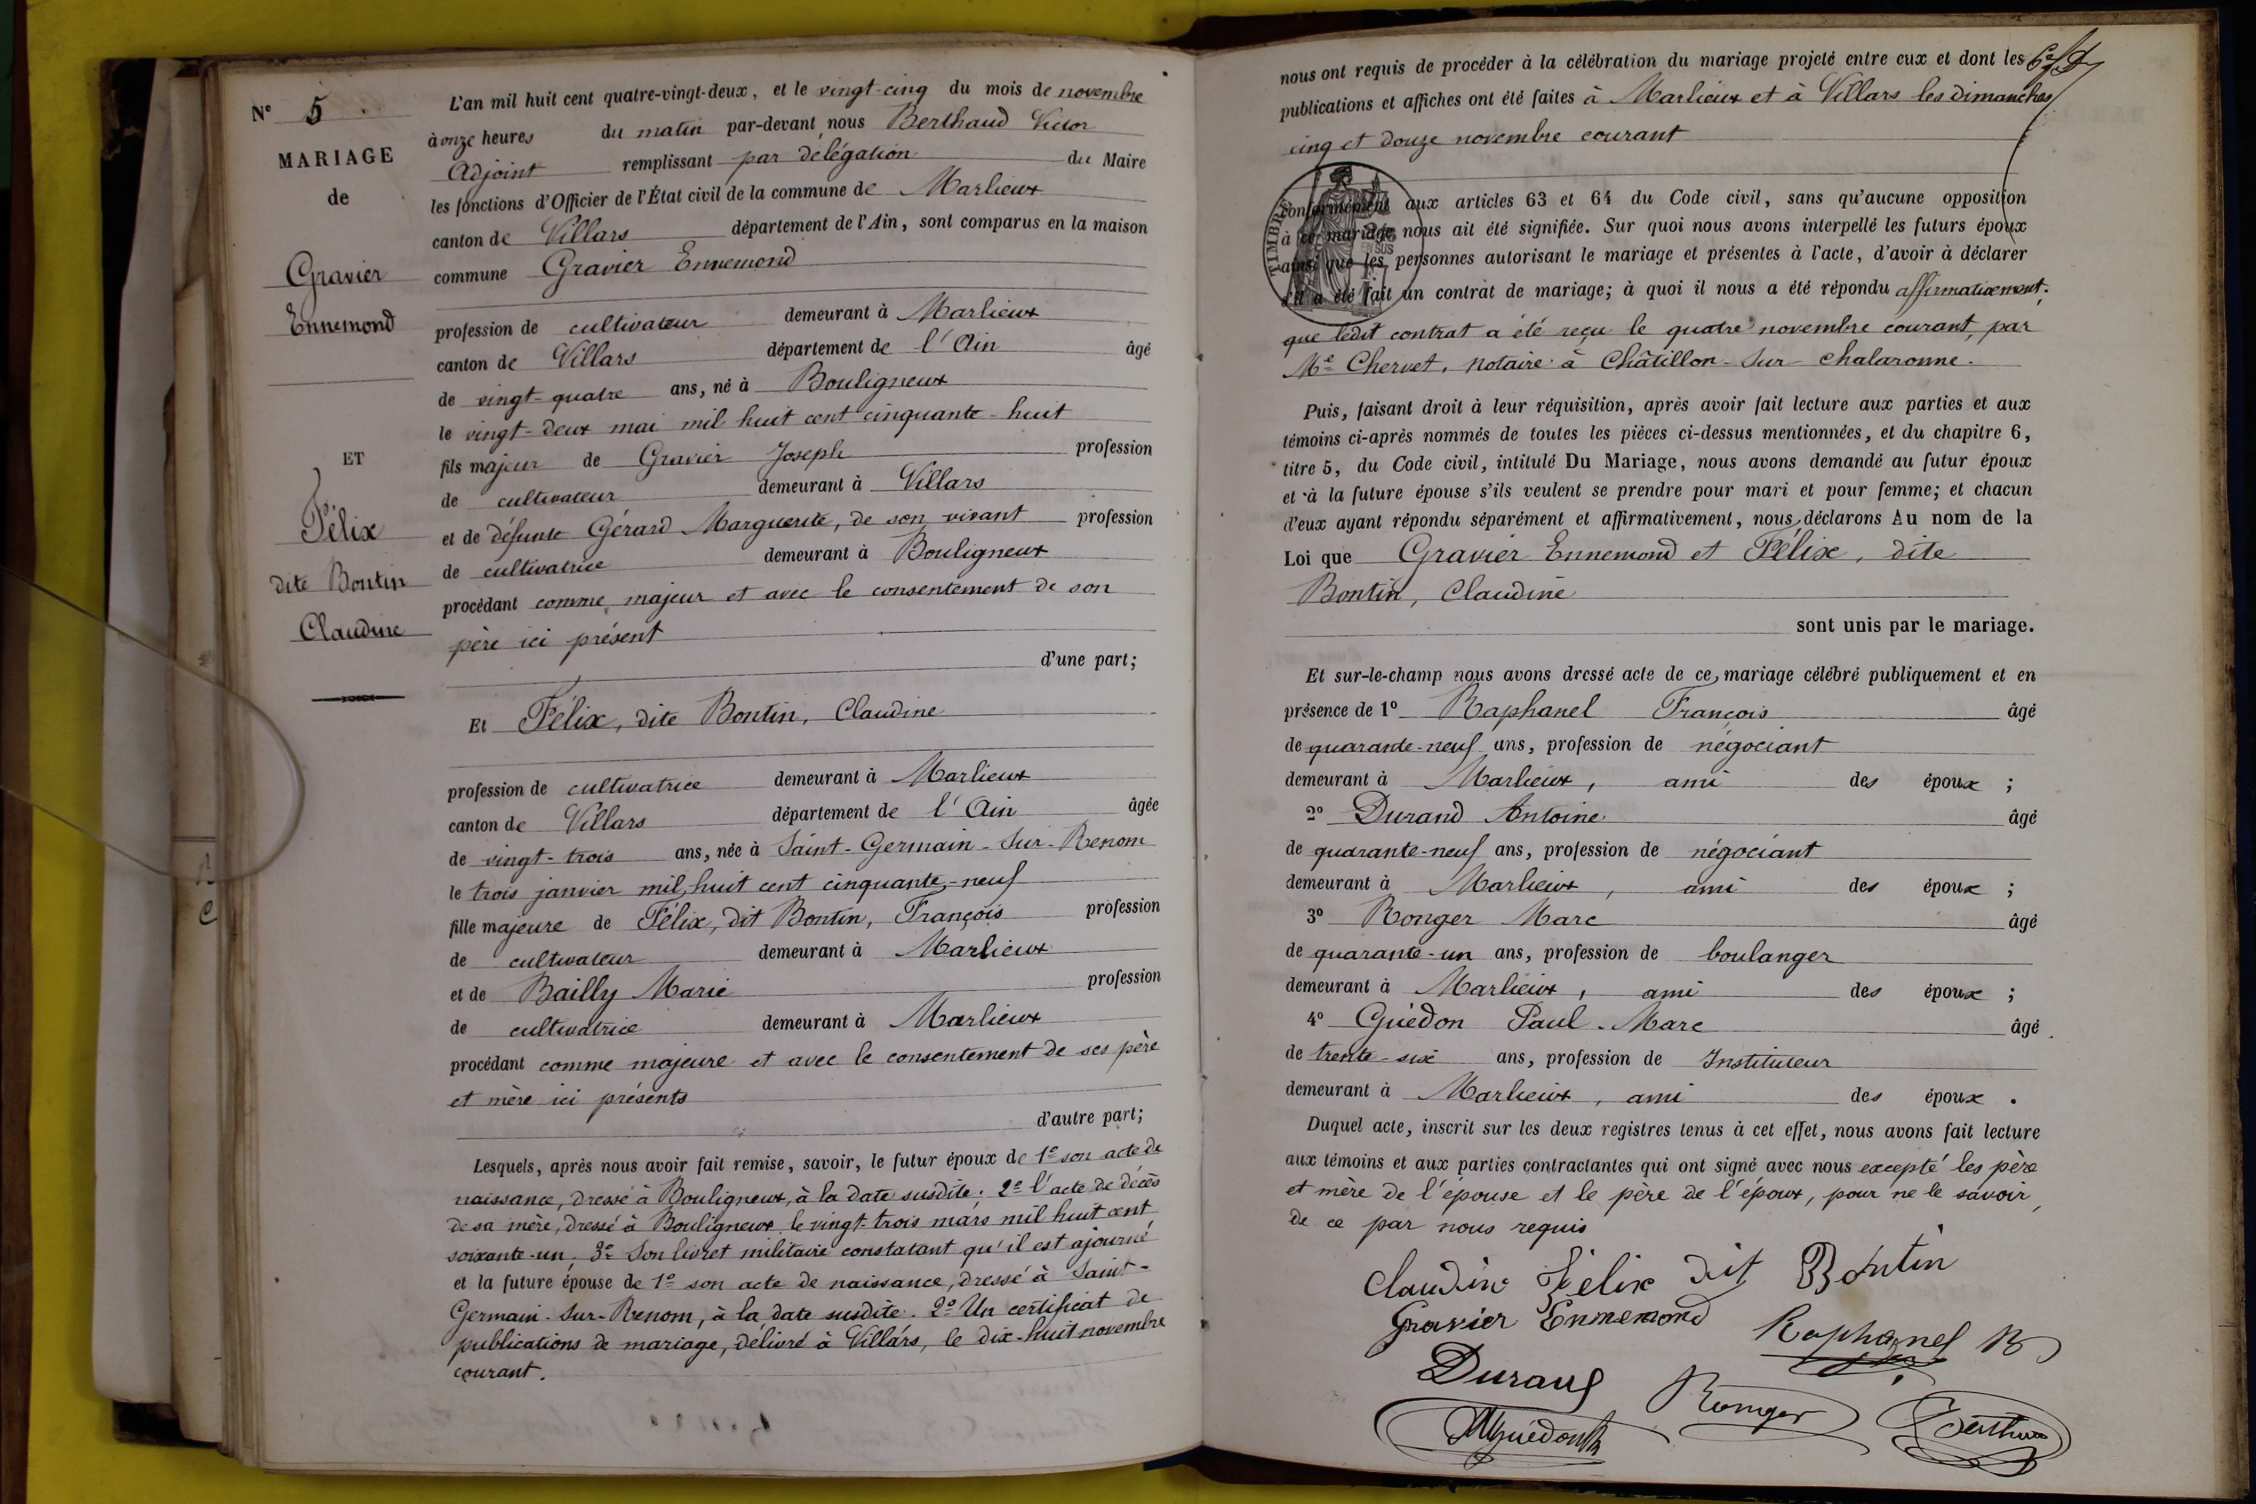 N° 5
MARIAGE
de
Gravier
Ennemond
ET
Félix
dite Bontin
Claudine
L'an mil huit cent quatre-vingt-deux, et le vingt-cinq du mois de novembre
à onze heures du matin par-devant nous Berthaud Victor
Adjoint remplissant par délégation du Maire
les fonctions d'Officier de l'État civil de la commune de Marlieux
canton de Villars département de l'Ain, sont comparus en la maison
commune Gravier Ennemond
profession de cultivateur demeurant à Marlieux
canton de Villars département de l'Ain âgé
de vingt-quatre ans, né à Bouligneux
le vingt-deux mai mil huit cent cinquante-huit
fils majeur de Gravier Joseph profession
de cultivateur demeurant à Villars
et de défunte Gérard Marguerite, de son vivant profession
de cultivatrice demeurant à Bouligneux
procédant comme majeur et avec le consentement de son
père ici présent
d'une part;
Et Félix, dite Bontin, Claudine
profession de cultivatrice demeurant à Marlieux
canton de Villars département de l'Ain âgée
de vingt-trois ans, née à Saint-Germain-sur-Renom
le trois janvier mil huit cent cinquante-neuf
fille majeure de Félix, dit Bontin, François profession
de cultivateur demeurant à Marlieux
et de Bailly Marie profession
de cultivatrice demeurant à Marlieux
procédant comme majeure et avec le consentement de ses père
et mère ici présents
d'autre part;
Lesquels, après nous avoir fait remise, savoir, le futur époux de 1° son acte de
naissance, dressé à Bouligneux, à la date susdite; 2° l'acte de décès
de sa mère, dressé à Bouligneux le vingt-trois mars mil huit cent
soixante-un, 3° Son livret militaire constatant qu'il est ajourné
et la future épouse de 1° son acte de naissance, dressé à Saint-
Germain-sur-Renom, à la date susdite. 2° Un certificat de
publications de mariage, délivré à Villars, le dix-huit novembre
courant.
nous ont requis de procéder à la célébration du mariage projeté entre eux et dont les
publications et affiches ont été faites à Marlieux et à Villars les dimanches
cinq et douze novembre courant
TIMBRE
conformément aux articles 63 et 64 du Code civil, sans qu'aucune opposition
à ce mariage nous ait été signifiée. Sur quoi nous avons interpellé les futurs époux
ainsi que les personnes autorisant le mariage et présentes à l'acte, d'avoir à déclarer
s'il a été fait un contrat de mariage; à quoi il nous a été répondu affirmativement;
que ledit contrat a été reçu le quatre novembre courant, par
Me Chervet, notaire à Châtillon-sur-Chalaronne.
Puis, faisant droit à leur réquisition, après avoir fait lecture aux parties et aux
témoins ci-après nommés de toutes les pièces ci-dessus mentionnées, et du chapitre 6,
titre 5, du Code civil, intitulé Du Mariage, nous avons demandé au futur époux
et à la future épouse s'ils veulent se prendre pour mari et pour femme; et chacun
d'eux ayant répondu séparément et affirmativement, nous déclarons Au nom de la
Loi que Gravier Ennemond et Félix, dite
Bontin, Claudine
sont unis par le mariage.
Et sur-le-champ nous avons dressé acte de ce mariage célébré publiquement et en
présence de 1° Raphanel François âgé
de quarante-neuf ans, profession de négociant
demeurant à Marlieux, ami des époux ;
2° Durand Antoine âgé
de quarante-neuf ans, profession de négociant
demeurant à Marlieux, ami des époux ;
3° Ronger Marc âgé
de quarante-un ans, profession de boulanger
demeurant à Marlieux, ami des époux ;
4° Guédon Paul-Marc âgé
de trente-six ans, profession de Instituteur
demeurant à Marlieux, ami des époux .
Duquel acte, inscrit sur les deux registres tenus à cet effet, nous avons fait lecture
aux témoins et aux parties contractantes qui ont signé avec nous excepté les père
et mère de l'épouse et le père de l'époux, pour ne le savoir,
de ce par nous requis
Claudine Félix dit Bontin
Gravier Ennemond Raphanel
Durand Ronger
Guédon Berthaud